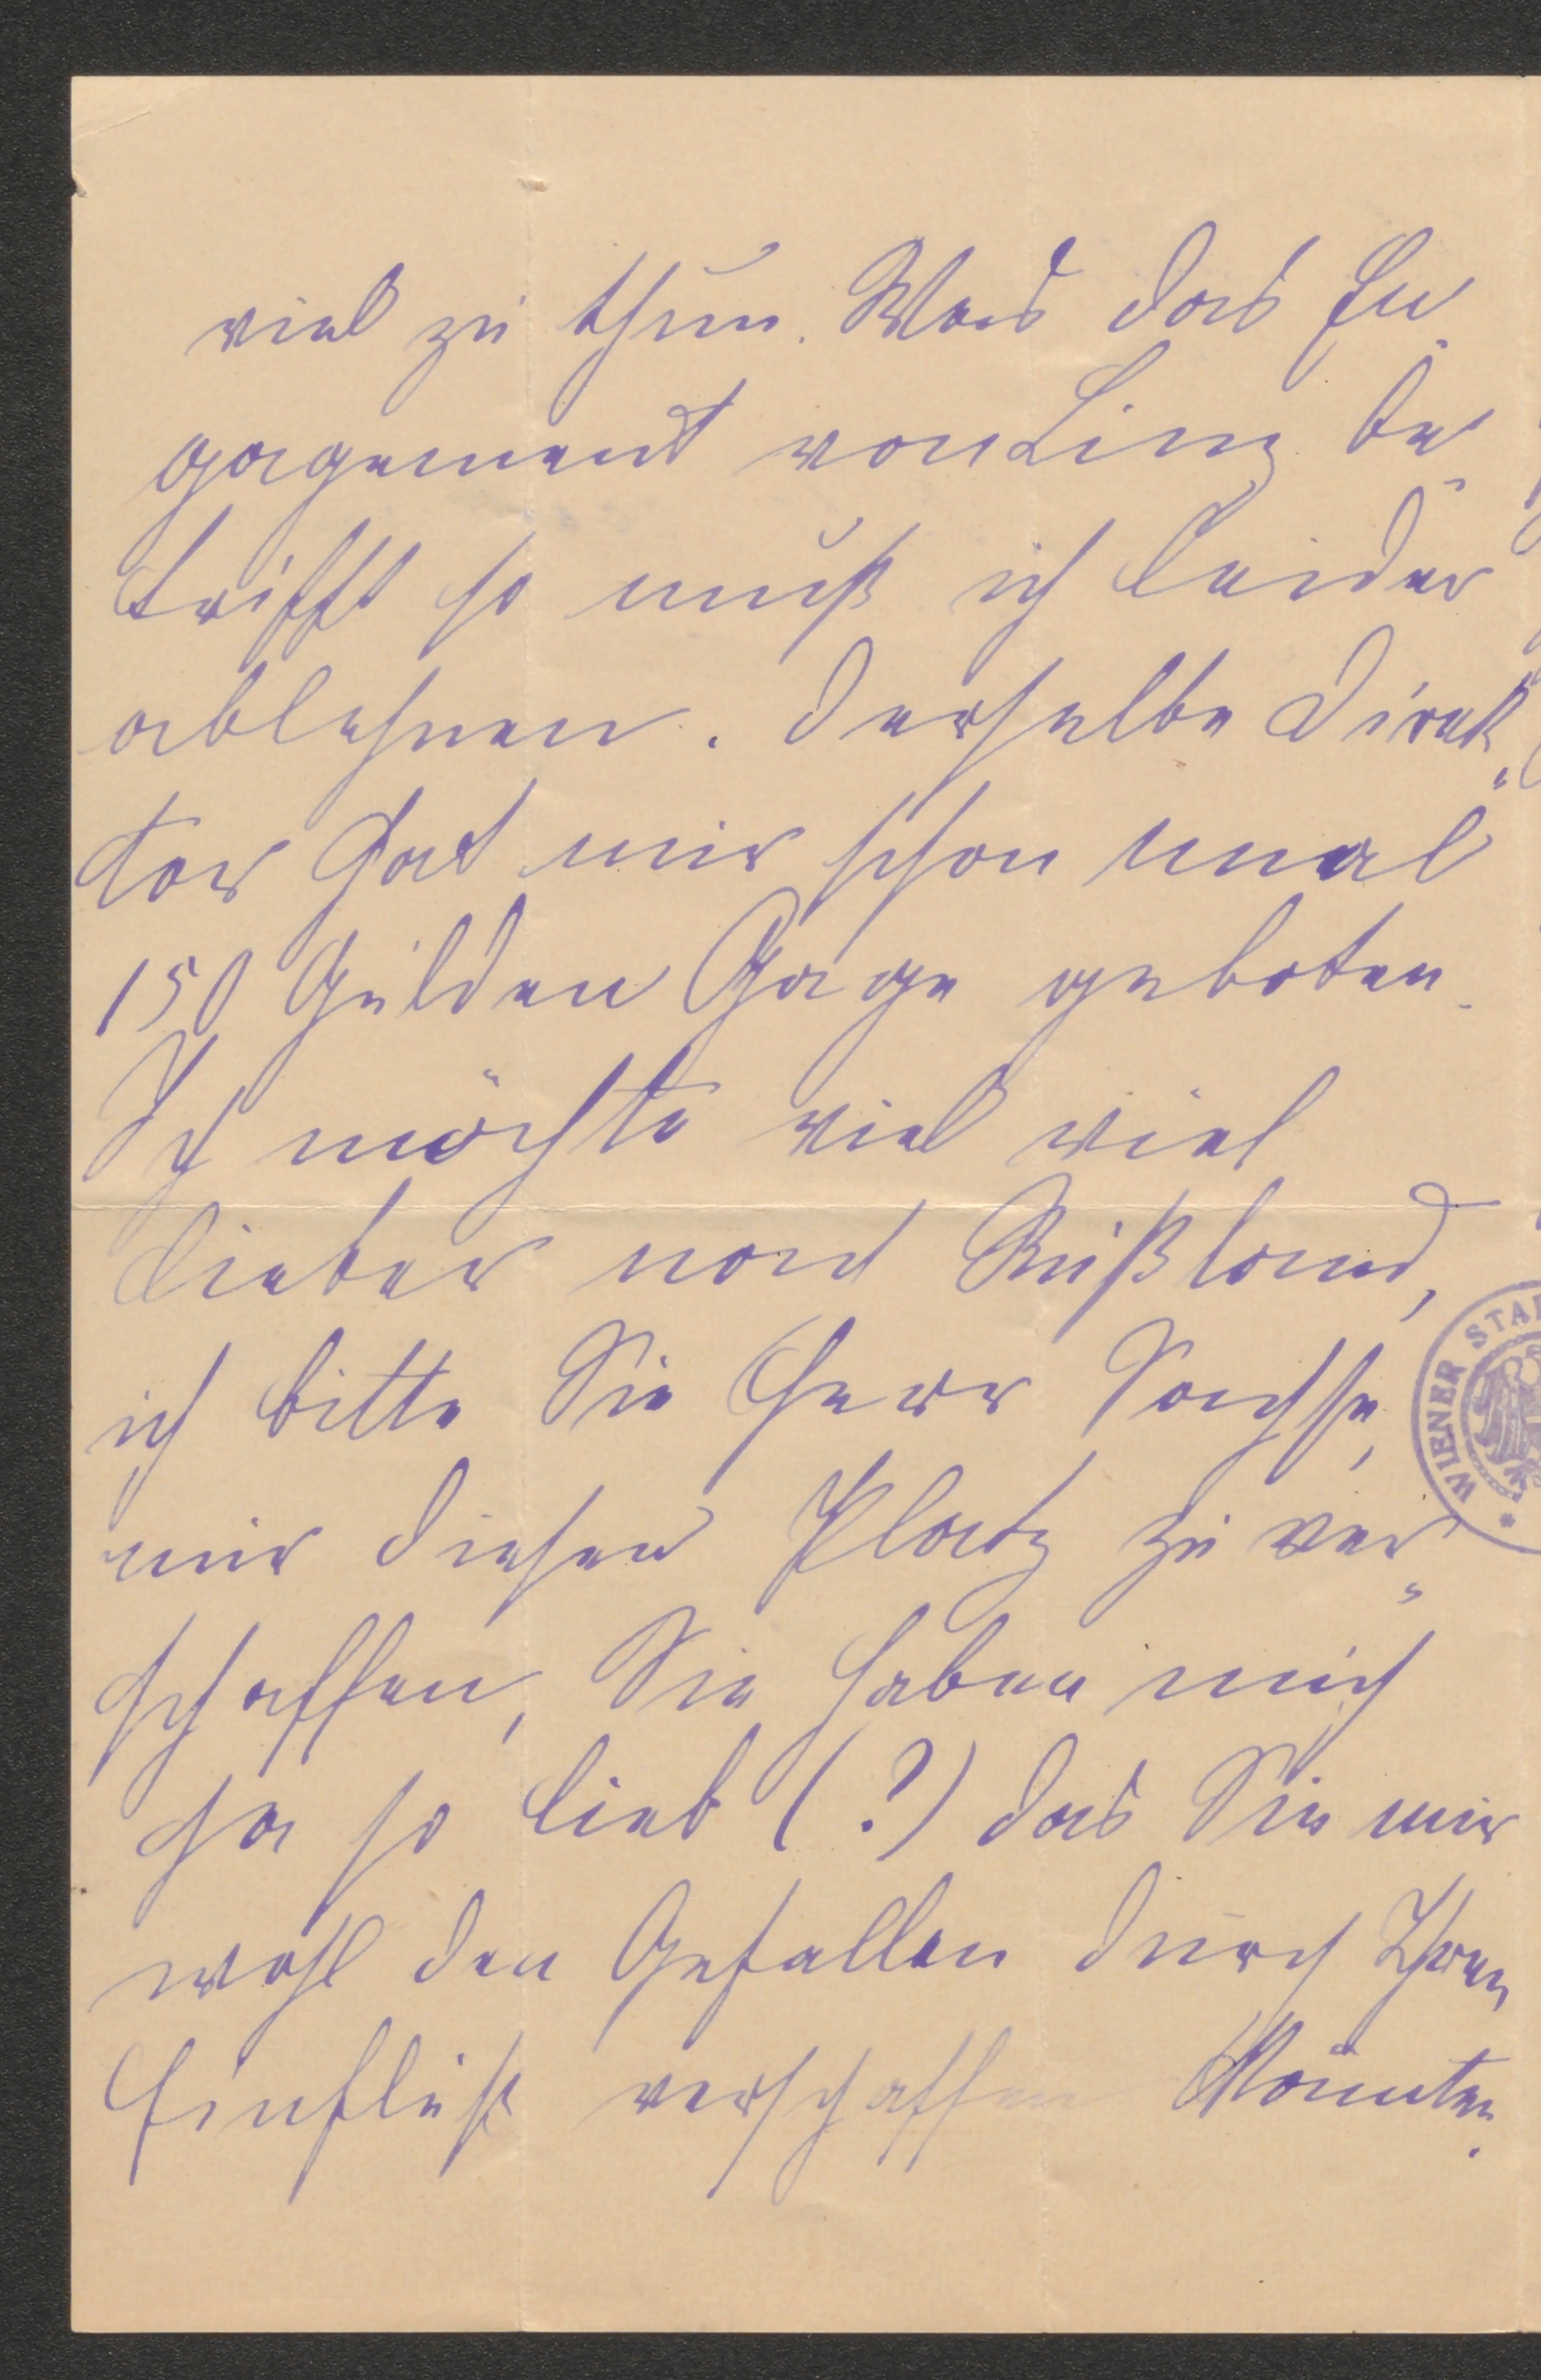 viel zu thun. Was das En-
gagement von Linz be-
trifft so muß ich leider
ablehnen. Derselbe Direk-
tor hat mir schon mal
150 Gulden Gage geboten.
Ich möchte viel viel
lieber nach Rußland,
ich bitte Sie Herr Sachse,
mir diesen Platz zu ver-
schaffen, Sie haben mich
ja so lieb (?) das Sie mir
wohl den Gefallen durch Ihren
Einfluß verschaffen könnten.
WIENER STA